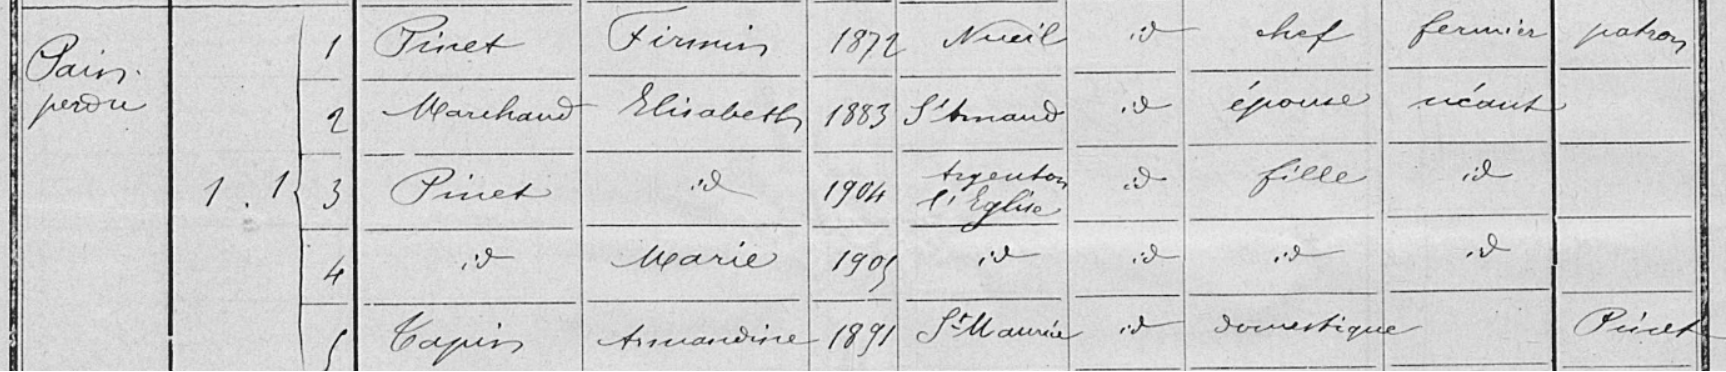 Pain perdu 1 1
1 Pinet Firmin 1872 Nueil id chef fermier patron
2 Marchand Elisabeth 1883 St Amand id épouse néant
3 Pinet id 1904 Argenton l'Eglise id fille id
4 id Marie 1905 id id id id
5 Tapin Armandine 1891 St Maurice id domestique Pinet